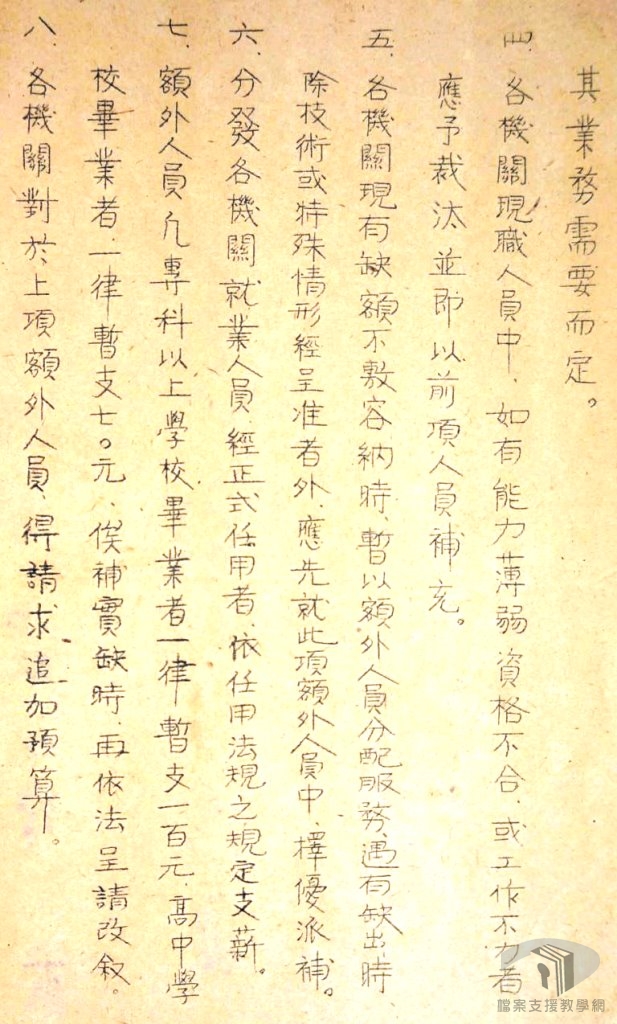 其業務需要而定。
四、各機關現職人員中、如有能力薄弱資格不合、或工作不力者
應予裁汰並即以前項人員補充。
五、各機關現有缺額不敷容納時、暫以額外人員分配服務、遇有缺出時
除技術或特殊情形經呈准者外、應先就此項額外人員中、擇優派補。
六、分發各機關就業人員、經正式任用者、依任用法規之規定支薪。
七、額外人員凡專科以上學校畢業者一律暫支一百元、高中學
校畢業者、一律暫支七〇元、俟補實缺時、再依法呈請改敘。
八、各機關對於上項額外人員、得請求追加預算。
檔案支援教學網